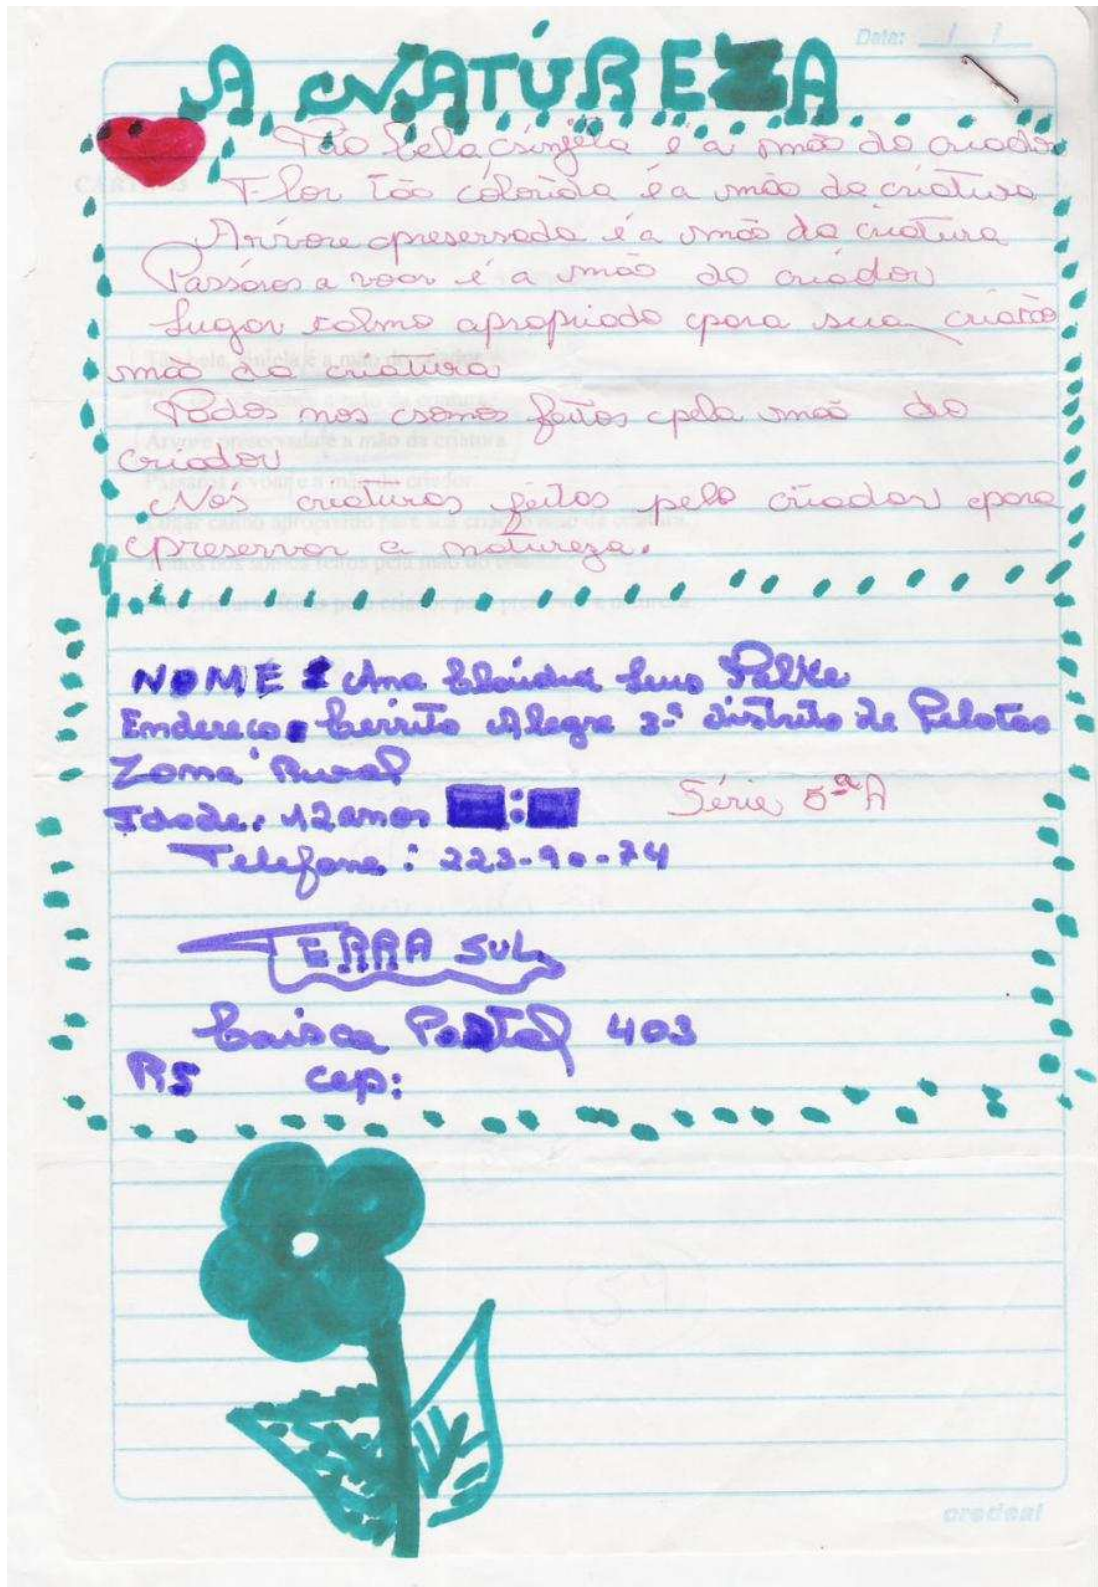 Data: / /
A NATUREZA
Tão bela singela é a mão do criador
Flor tão colorida é a mão da criatura
Árvore preservada é a mão da criatura
Pássaros a voar é a mão do criador
Lugar calmo apropriado para sua criação
mão da criatura
Todos nos somos feitos pela mão do
criador
Nós criaturas feitos pelo criador para
preservar a natureza.
NOME: Ana Claúdia Luis
Endereço: Cerrito Alegre 3º distrito de Pelotas
Zona Rural
Idade: 12 anos
Série 5ª A
Telefone: 223-90-74
TERRA SUL
Caixa Postal 403
RS cep:
credeal